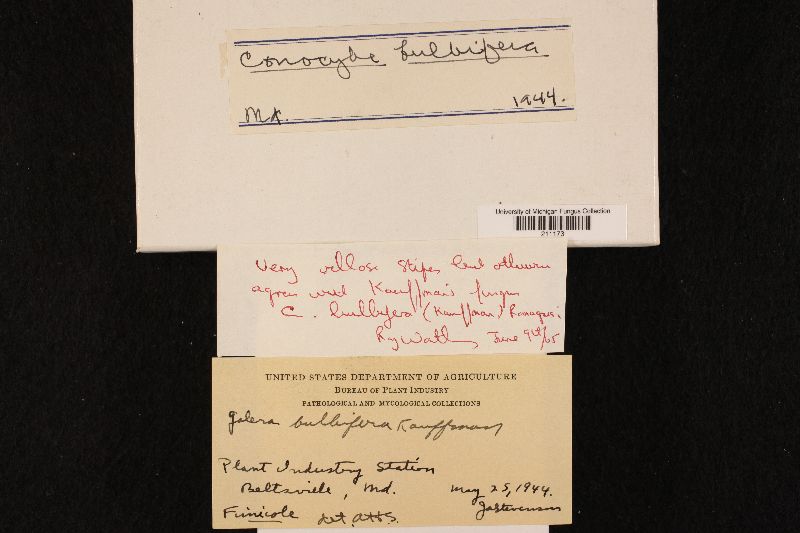 Conocybe bulbifera
Md. 1944.
University of Michigan Fungus Collection
211173
Very villose stipes but otherwise
agrees with Kauffman's fungus
C. bulbifera (Kauffman) Romagnesi
Roy Watling June 9th/65
UNITED STATES DEPARTMENT OF AGRICULTURE
BUREAU OF PLANT INDUSTRY
PATHOLOGICAL AND MYCOLOGICAL COLLECTIONS
Galera bulbifera Kauffman
Plant Industry Station
Beltsville, Md. May 25, 1944.
Fimicole det. AHS. JAStevenson